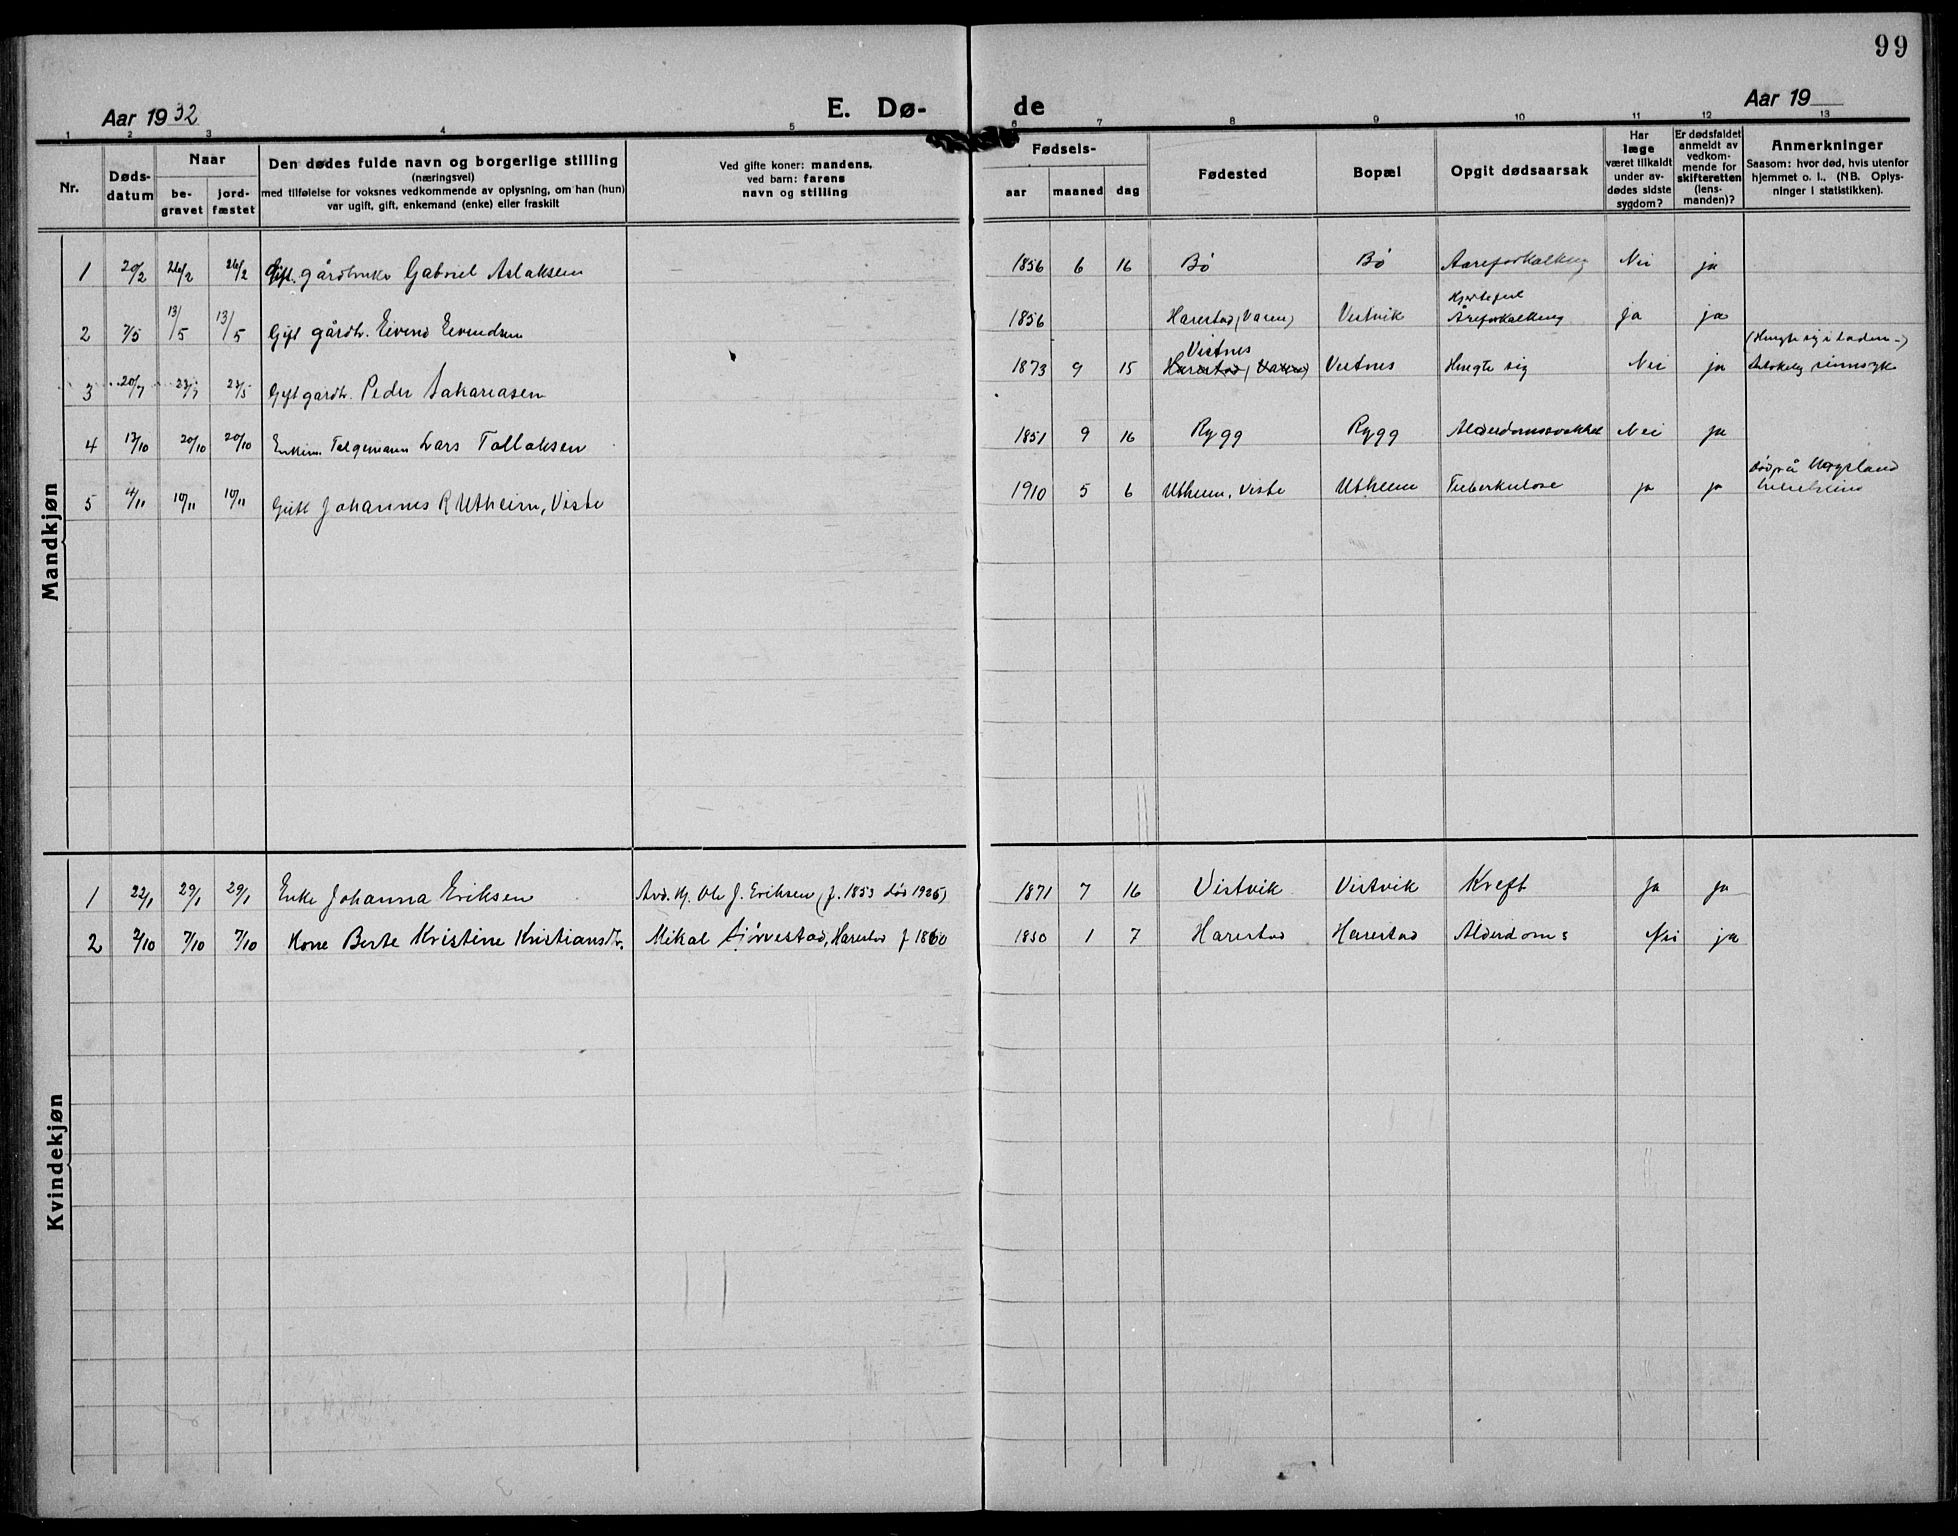 99
Aar 1932
E. Dø-
de
Aar 19
1 2 3 4 5 6 7 8 9 10 11 12 13
Nr.
Døds-
datum
Naar
be-
gravet
jord-
fæstet
Den dødes fulde navn og borgerlige stilling
(næringsvei)
med tilføielse for voksnes vedkommende av oplysning, om han (hun)
var ugift, gift, enkemand (enke) eller fraskilt
Ved gifte koner: mandens,
ved barn: farens
navn og stilling
Fødsels-
aar
maaned
dag
Fødested
Bopæl
Opgit dødsaarsak
Har
læge
været tilkaldt
under av-
dødes sidste
sygdom?
Er dødsfaldet
anmeldt av
vedkom-
mende for
skifteretten
(lens-
manden)?
Anmerkninger
Saasom: hvor død, hvis utenfor
hjemmet o. l., (NB. Oplys-
ninger i statistikken).
Mandkjøn
1 20/2 26/2 26/2 Gift. gårdbruker Gabriel Aslaksen 1856 6 16 Bø Bø Aareforkalkning Nei ja
2 7/5 13/5 13/5 Gift gårdbr. Eivind Eivindsen 1856 Harestad (Varen) Vistvik Hjertefeil Åreforkalkning ja ja
3 20/7 23/7 23/5 Gift gårdbr. Peder Sakariasen 1873 9 15 Vistnes Harestad (Varen) Vistnes Hengte sig Nei ja (Hengte sig i laden -) sinnsyk
4 13/10 20/10 20/10 Enkem. Lars Tollaksen 1851 9 16 Rygg Rygg Alderdomssvakhet Nei ja
5 4/11 10/11 10/11 Gift Johannes R Utheim, Viste 1910 5 6 Utheim, Viste Utheim Tuberkulose ja ja Død på
Kvindekjøn
1 22/1 29/1 29/1 Enke Johanna Eriksen Avd. Kj. Ole J. Eriksen (f. 1853 død 1926) 1871 7 16 Vistvik Vistvik Kreft ja ja
2 2/10 7/10 7/10 Kone Berte Kristine Kristiansdtr. Mikal Sjørvestad, Harestad f 1860 1850 1 7 Harestad Harestad Alderdoms Nei ja